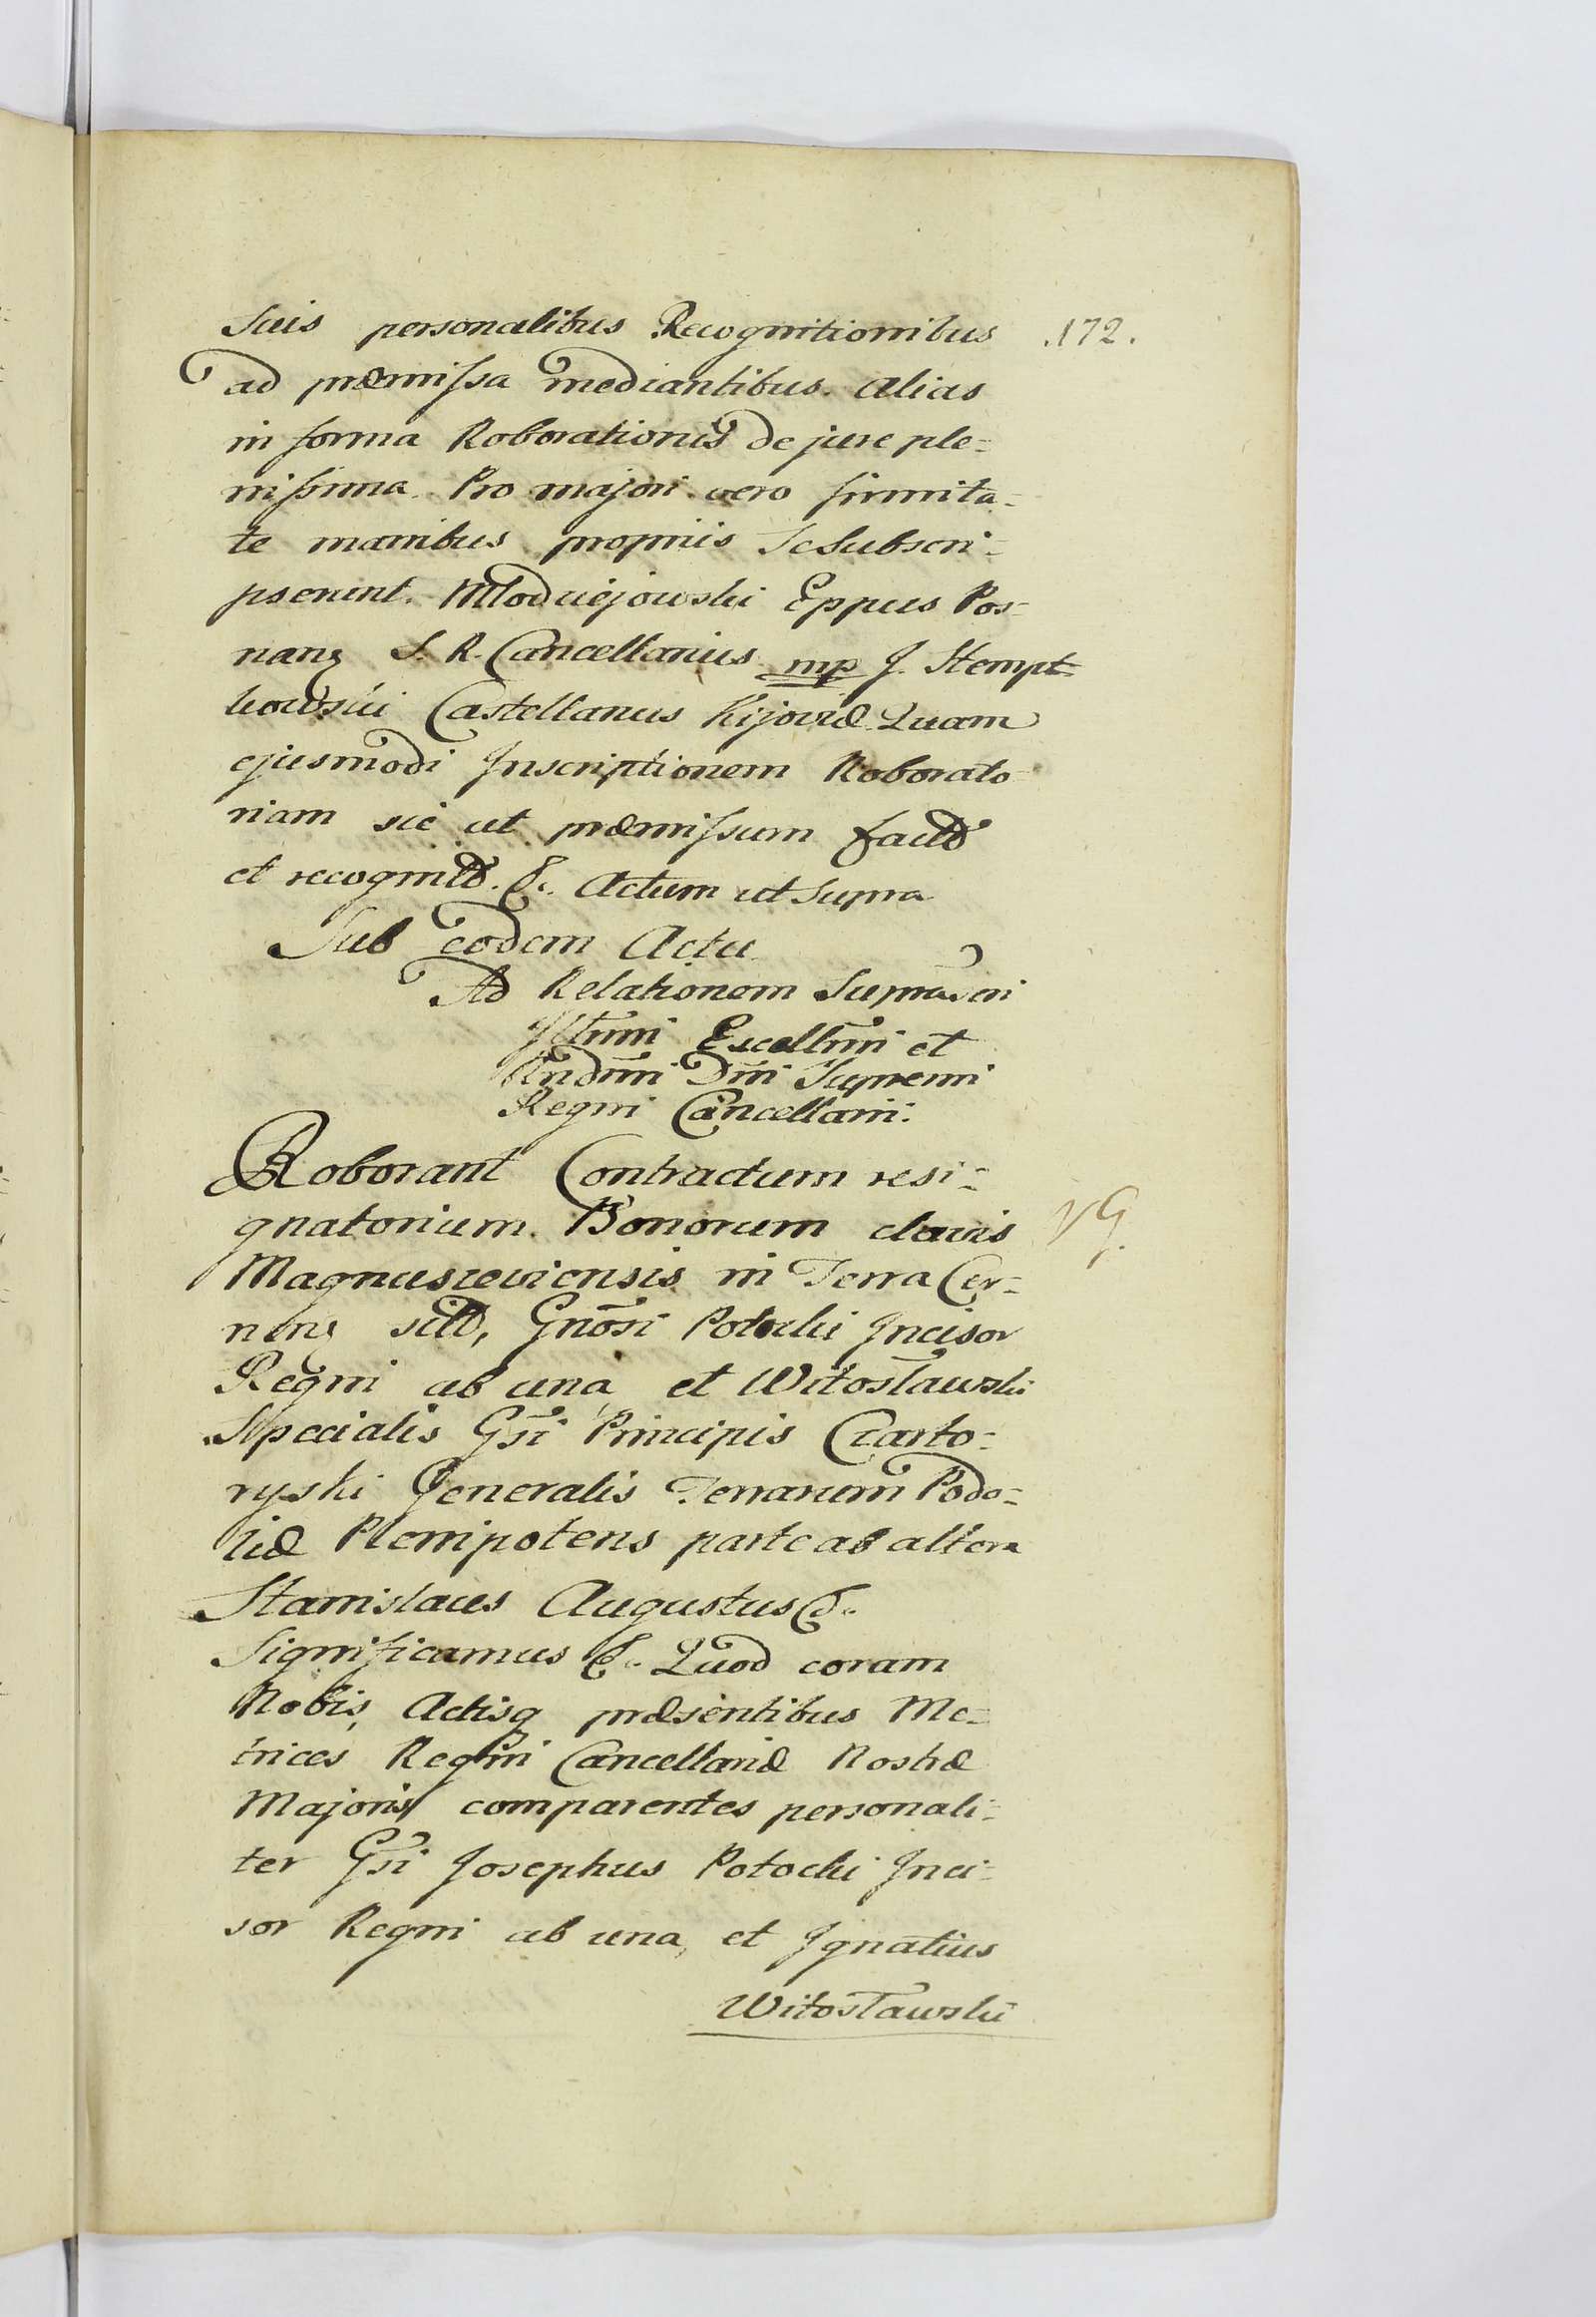 Suis personalibus Recognitionibus .172.
ad præmissa mediantibus. Alias
in forma Roborationis de jure ple=
nissima. Pro majori vero firmita=
te manibus propriis Se Subscri=
pserunt. Młodziejowski Eppus Pos=
nanę S. R. Cancellarius mp J. Stempt
kowski Castellanus Kijoviæ. Quam
ejusmodi Inscriptionem Roborato=
riam sic ut præmissum
et recognitæ. &c. Actum ut Supra
Sub eodem Actu
Ad Relationem Suprascri
Illmi Excellmi et
Rndmi Dni Supremi
Regni Cancellarii.
Roborant Contractum resi=
gnatorium Bonorum clavis
Magnuszeviensis in Terra Czer=
nenę sitæ, Gnosi Potocki Incisor
Regni ab una et Witosławski
Specialis Gsi Principis Czarto=
ryski Generalis Terrarum Podo=
liæ Plenipotens parte ab altera
Stanislaus Augustus &c.
Significamus &c. Quod coram
Nobis, Actisq præsentibus Me=
trices Regni Cancellariæ Nostræ
Majoris comparentes personali=
ter Gsi Josephus Potocki Inci=
sor Regni ab una, et Ignatius
Witosławski